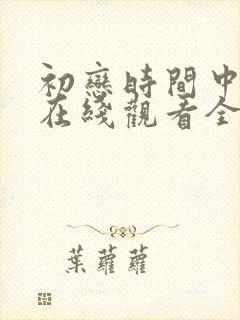 初戀時間中
在綫觀看全
葉蘿蘿